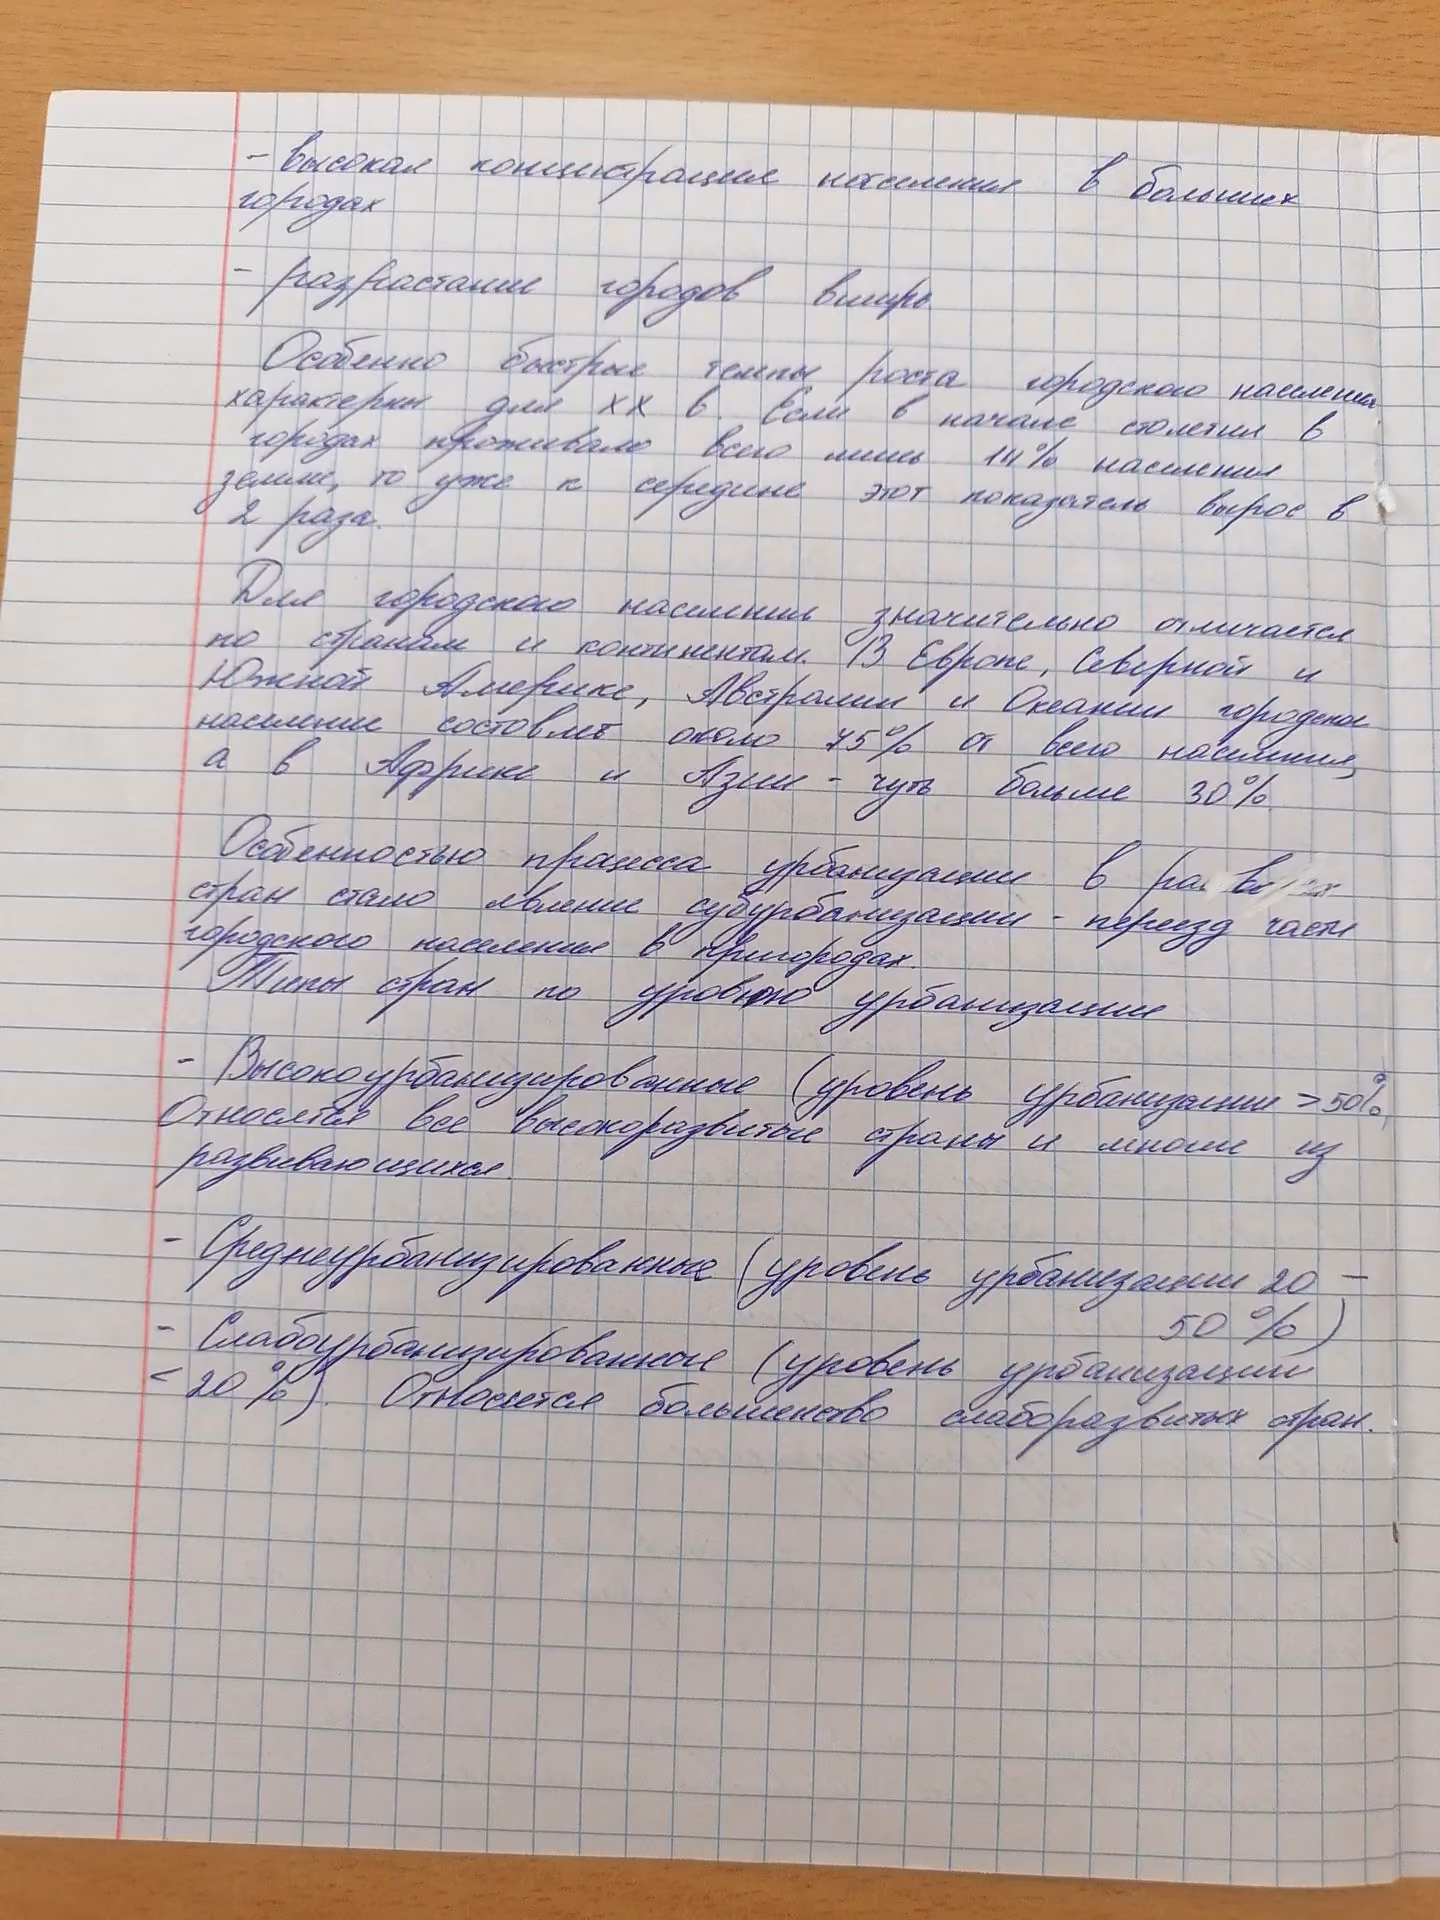 - высокая концентрация населения в больших
городах
- разрастание городов вширь.
Особенно быстрые темпы роста городского населения
характерны для XX в. Если в начале столетия в
городах проживало всего лишь 14% населения
земли, то уже к середине этот показатель вырос в
2 раза.
Для городского населения значительно отличается
по странам и континентам. В Европе, Северной и
Южной Америке, Австралии и Океании городское
население составлет около 75% от всего населения,
а в Африке и Азии - чуть больше 30%.
Особенностью процесса урбанизации в
стран стало явление субурбанизации - переезд части
городского населения в пригородах.
Типы стран по уровню урбанизации
- Высокоурбанизированные (уровень урбанизации > 50%)
Относятся все высокоразвитые страны и многие из
развивающихся.
- Среднеурбанизированные (уровень урбанизации 20 -
50%)
- Слабоурбанизированные (уровень урбанизации
< 20%). Относятся большенство слаборазвитых стран.